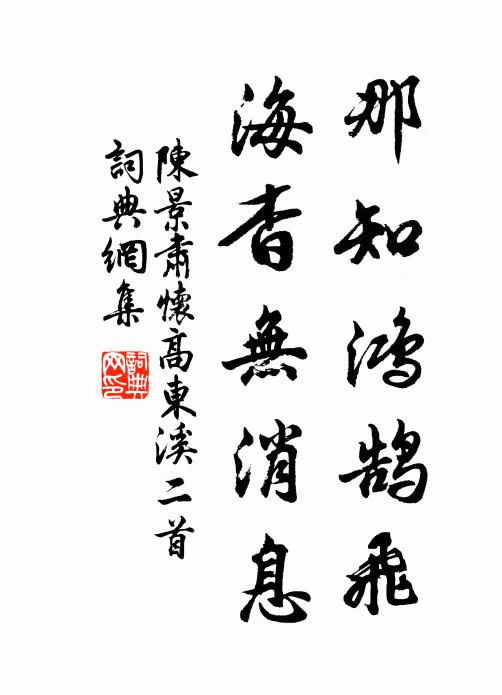 那知鴻鹄飛
海杳無消息
陳景肅懷高東溪二首
詞典網集
詞典
网印